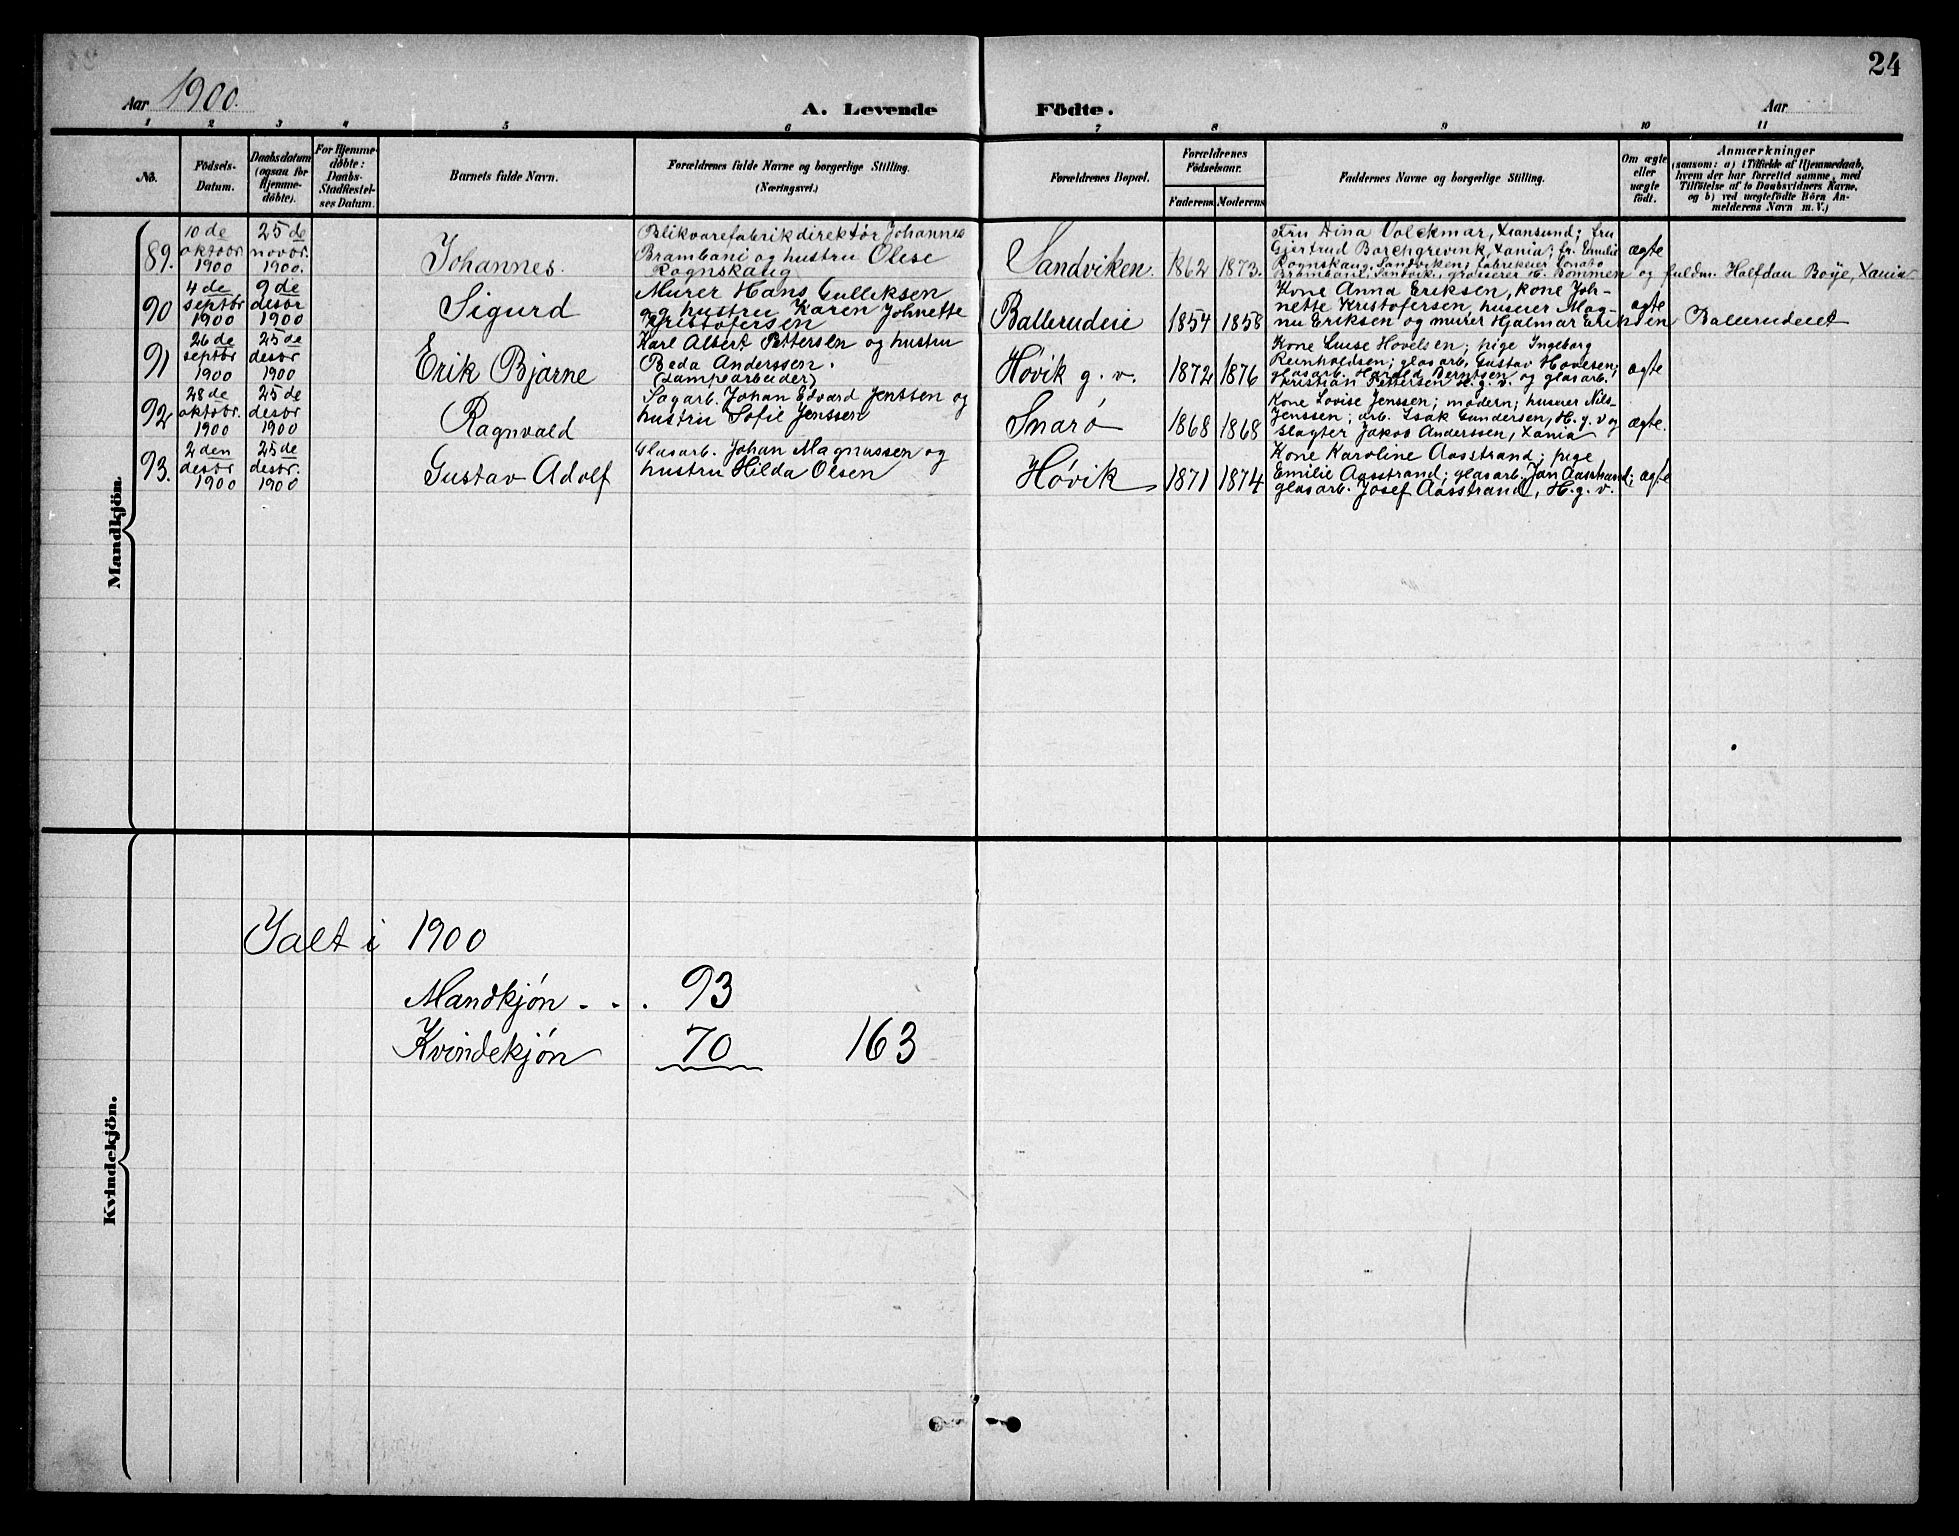 24
Aar 1900.
A. Levende Födte.
Aar
1 2 3 4 5 6 7 8 9 10 11
No.
Födsels-
Datum.
Daabsdatum
(ogsaa for
Hjemme-
döbte).
For Hjemme-
döbte:
Daabs-
Stadfæstel-
ses Datum.
Barnets fulde Navn.
Forældrenes fulde Navne og borgerlige Stilling.
(Næringsvei.)
Forældrenes Bopæl.
Forældrenes
Födselsaar.
Faderens Moderens
Faddernes Navne og borgerlige Stilling.
Om ægte
eller
uægte
født.
Anmærkninger
(saasom: a) i Tilfælde af Hjemmedaab,
hvem der har forrettet samme, med
Tilföielse af to Daabsvidners Navne,
og b) ved uægtefödte Börn An-
melderens Navn m. V.)
Mandkjön.
89.
10 de
oktobr
1900
25 de
novbr.
1900.
Johannes.
Blikvarefabrikdirektør Johannes
Brambani og hustru Olise
Rognskaug
Sandviken.
1862 1873.
Fru Dina Volckmar, Xansund; fru
Gjertrud Borchgrevink, Xania; fr. Emilie
Rognskaug, Sandviken; fabrikeier Donato
Brambani, Sandvik.; grosserer H. Bommen og fuldm. Halfdan Boye, Xania
ægte
90
4 de
septbr
1900
9 de
desbr
1900
Sigurd
Murer Hans Gulliksen
og hustru Karen Johnette
Kristofersen
Ballerudeie
1854 1858
Kone Anna Eriksen, kone Joh-
nette Kristofersen, huseier Mag-
nu Eriksen og murer Hjalmar Eriksen Ballerudeiet
ægte
91
26 de
septbr
1900
25 de
desbr
1900
Erik Bjarne
Karl Albert Pettersen og hustru
Beda Anderssen.
(Lampearbeider)
Høvik g. v.
1872 1876
Kone Luise Hovelsen; pige Ingeborg
Reinholdsen; glasarb. Gustav Hovelsen;
glasarb. Harald Berntsen og glasarb.
Kristian Pettersen H. g. v.
ægte
92
28 de
oktobr.
1900
25 de
desbr
1900
Ragnvald
Sagarb. Johan Edvard Jenssen og
hustru Sofie Jenssen
Snarø
1868 1868
Kone Lovise Jenssen; modern; huseier Nils
Jenssen; arb. Isak Gundersen, H. g. v og
slagter Jakob Anderssen, Xania
ægte.
93.
2 den
desbr
1900
25 de
desbr.
1900
Gustav Adolf
Glasarb. Johan Magnussen og
hustru Hilda Olsen
Høvik
1871 1874
Kone Karoline Aasstrand; pige
Emilie Aasstrand; glasarb. Jan Aasstrand;
glasarb. Josef Aasstrand, H. g. v.
ægte
Kvindekjön.
Ialt i 1900
Mandkjøn - - . 93
Kvindekjøn 70 163